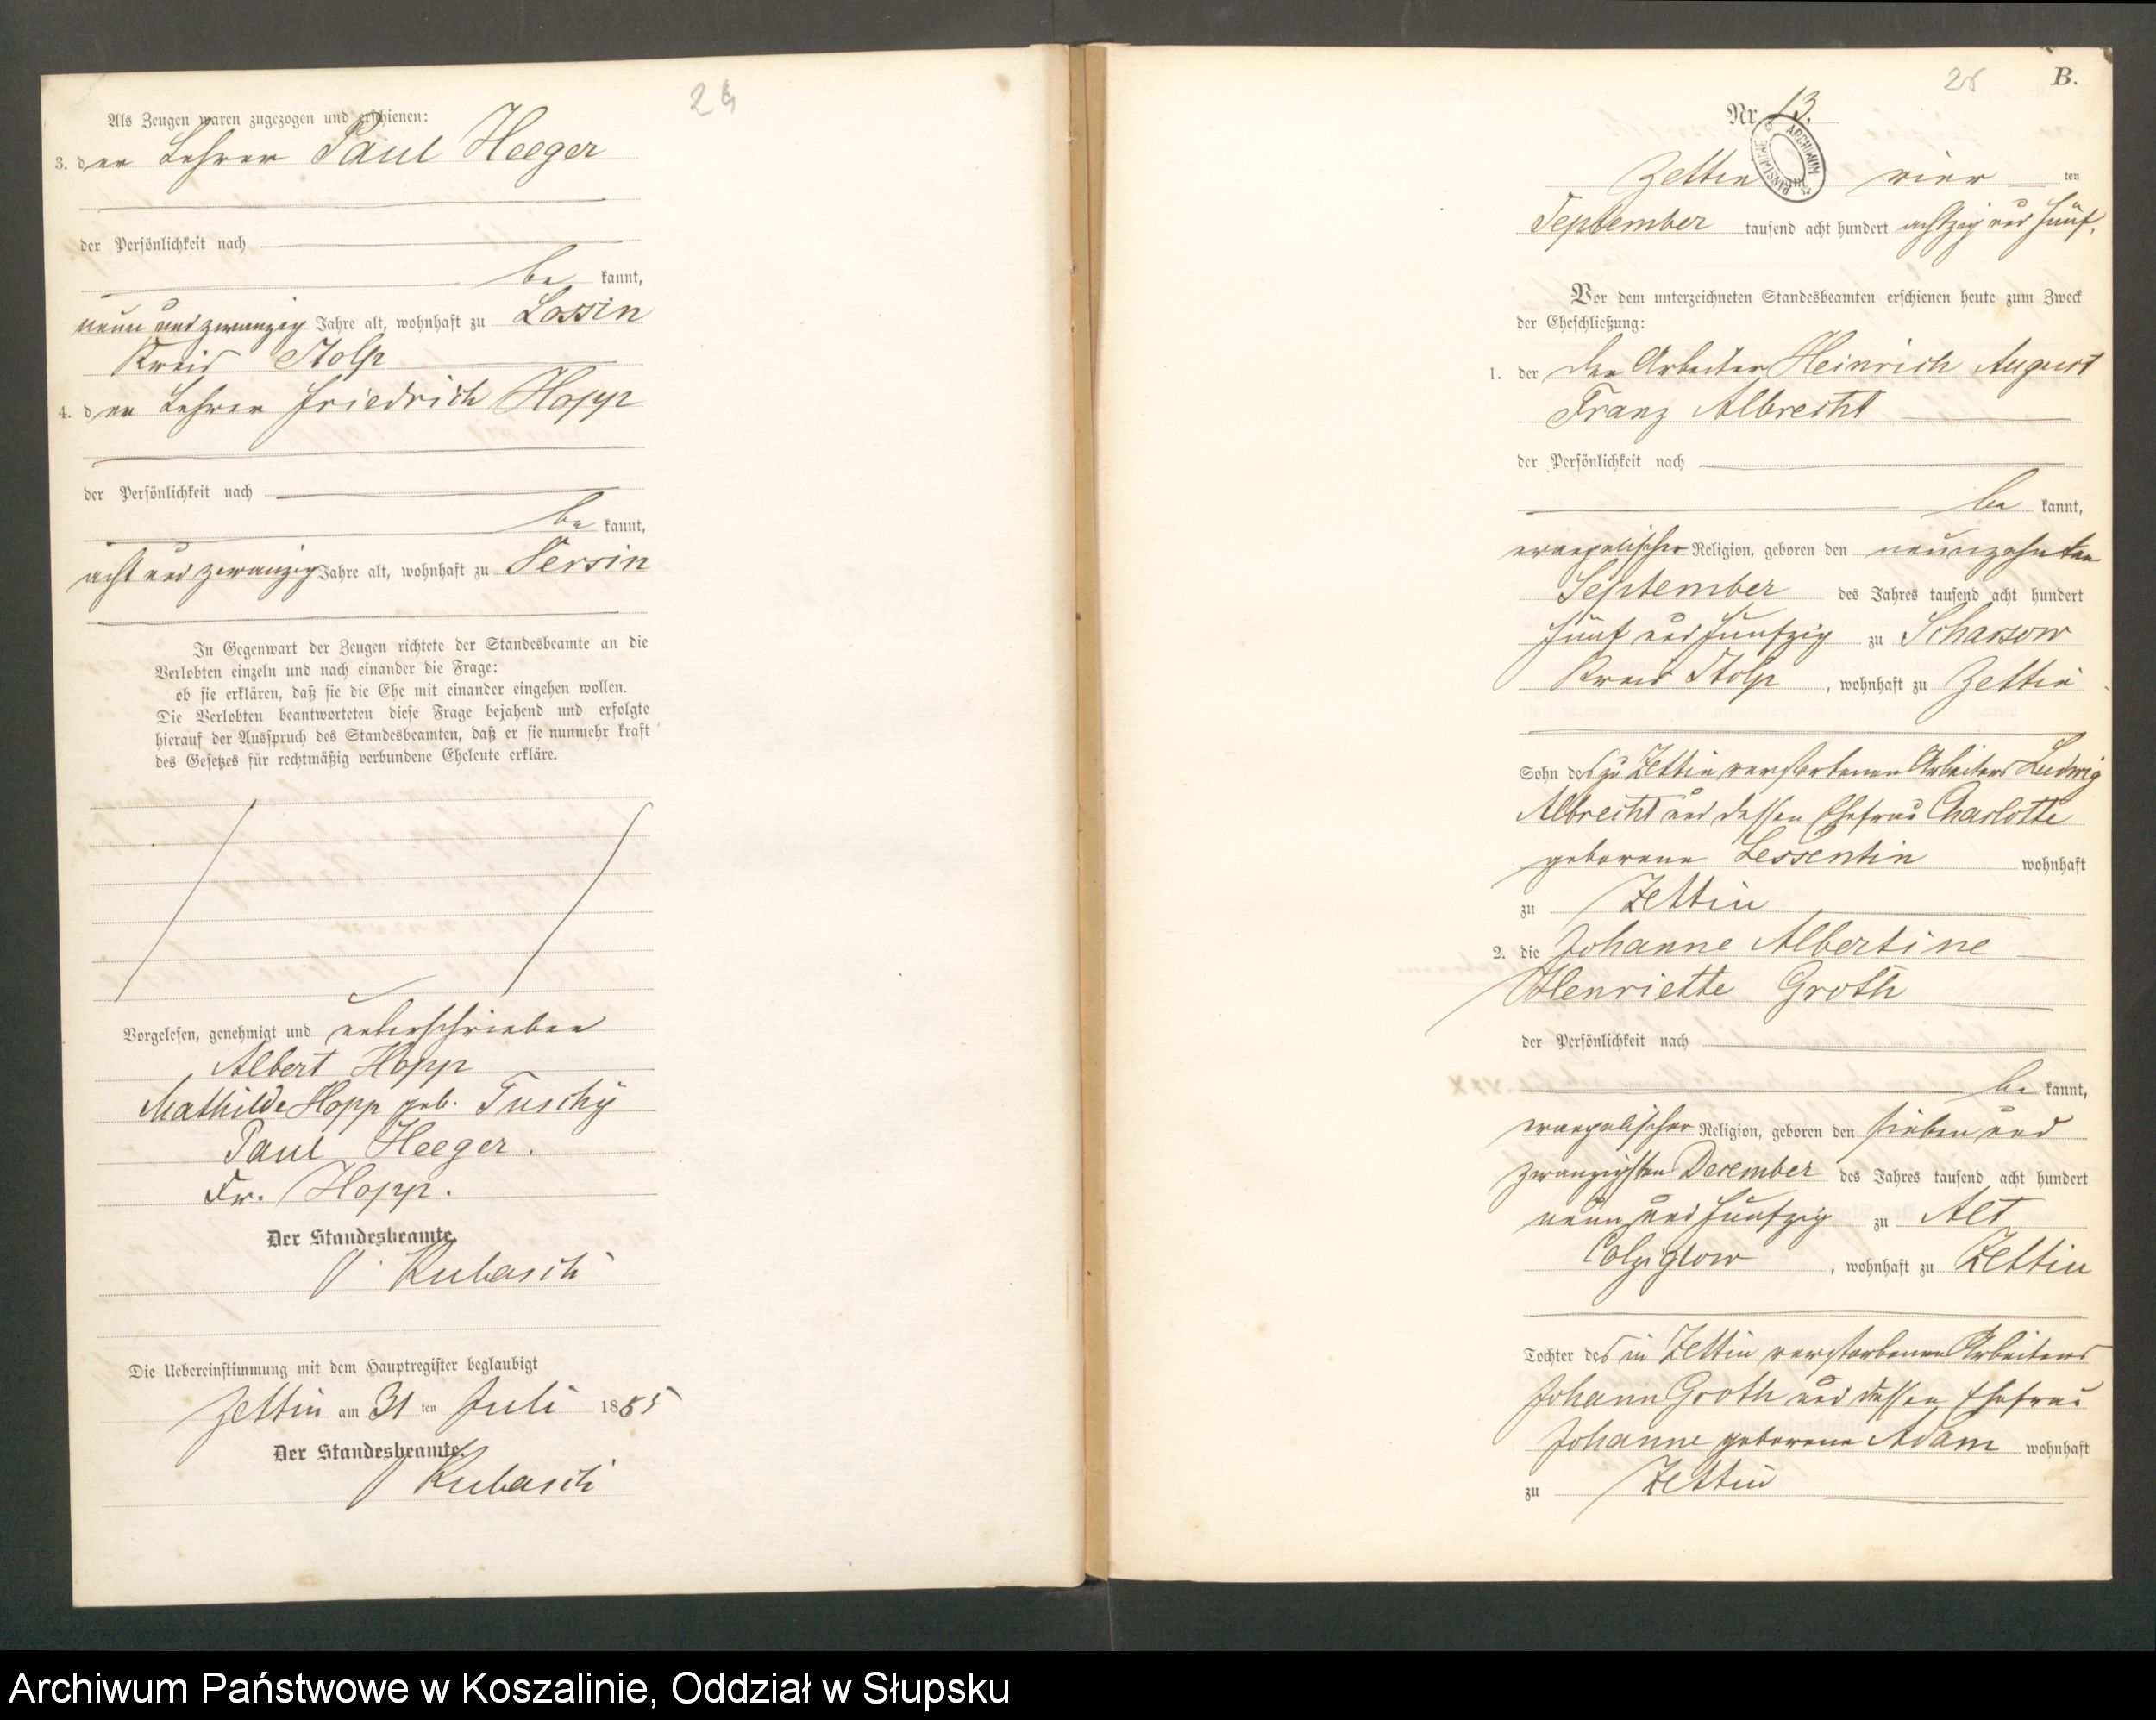 24
Als Zeugen waren zugezogen und erschienen:
3. der Lehrer Paul Heeger
der Persönlichkeit nach
be kannt,
neun und zwanzig Jahre alt, wohnhaft zu Lossin
Kreis Stolp
4. der Lehrer Friedrich Hopp
der Persönlichkeit nach
be kannt,
acht und zwanzig Jahre alt, wohnhaft zu Versin
In Gegenwart der Zeugen richtete der Standesbeamte an die
Verlobten einzeln und nach einander die Frage:
ob sie erklären, daß sie die Ehe mit einander eingehen wollen.
Die Verlobten beantworteten diese Frage bejahend und erfolgte
hierauf der Ausspruch des Standesbeamten, daß er sie nunmehr kraft
des Gesetzes für rechtmäßig verbundene Eheleute erkläre.
Vorgelesen, genehmigt und unterschrieben
Albert Hopp
Mathilde Hopp geb. Tuschy
Paul Heeger.
Fr. Hopp.
Der Standesbeamte.
Kubasch
Die Uebereinstimmung mit dem Hauptregister beglaubigt
Zettin am 31 ten Juli 1885
Der Standesbeamte.
Kubasch
25 B.
Nr. 13.
ARCHIWUM PAŃSTWOWE
Zettin am vier ten
September tausend acht hundert achtzig und fünf.
Vor dem unterzeichneten Standesbeamten erschienen heute zum Zweck
der Eheschließung:
1. der der Arbeiter Heinrich August
Franz Albrecht
der Persönlichkeit nach
be kannt,
evangelischer Religion, geboren den neunzehnten
September des Jahres tausend acht hundert
fünf und fünfzig zu Scharsow
Kreis Stolp, wohnhaft zu Zettin
Sohn des zu Zettin verstorbenen Arbeiters Ludwig
Albrecht und dessen Ehefrau Charlotte
geborene Lessentin wohnhaft
zu Zettin
2. die Johanne Albertine
Henriette Groth
der Persönlichkeit nach
be kannt,
evangelischer Religion, geboren den sieben und
zwanzigsten December des Jahres tausend acht hundert
neun und fünfzig zu Alt
Colziglow, wohnhaft zu Zettin
Tochter des in Zettin verstorbenen Arbeiters
Johann Groth und dessen Ehefrau
Johanne geborene Adam wohnhaft
zu Zettin
Archiwum Państwowe w Koszalinie, Oddział w Słupsku